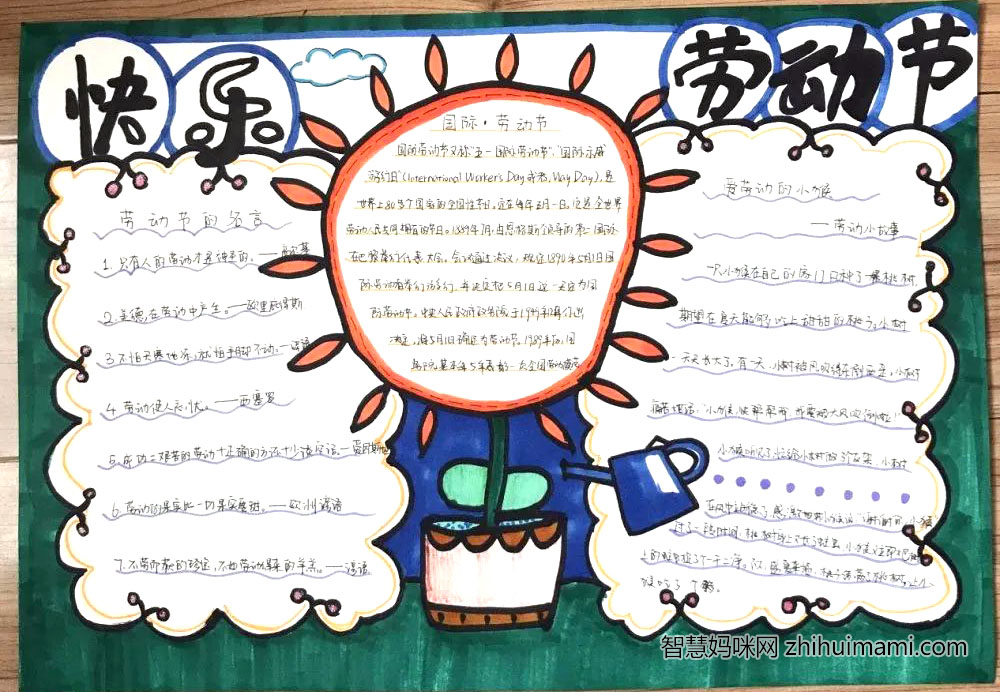 快乐
劳动节
国际·劳动节
国际劳动节又称"五一国际劳动节"、"国际示威
游行日"(International Workers Day或者May Day),是
世界上80多个国家的全国性节日。定在每年五月一日。它是全世界
劳动人民共同拥有的节日。1889年7月,由恩格斯领导的第二国际
在巴黎举行代表大会。会议通过决议,规定1890年5月1日国
际劳动者举行游行,并决定把5月1日这一天定为国
际劳动节。中央人民政府政务院于1949年12月作出
决定,将5月1日确定为劳动节。1989年后,国
务院基本每5年表彰一次全国劳动模范
劳动节的名言
1.只有人的劳动才是神圣的。——高尔基
2.美德,在劳动中产生。——欧里庇得斯
3.不怕天寒地冻,就怕手脚不动。——谚语
4.劳动使人忘忧。——西塞罗
5.成功=艰苦的劳动+正确的方法+少说空话。—爱因斯坦
6.——欧洲谚语
7.——谚语
爱劳动的小猴
——劳动小故事
一只小猴在自己的房门口种了一棵桃树,
期望在夏天能够吃上甜甜的桃子。小树
一天天长大了。有一天,小树被风吹得东倒西歪,小树
痛苦地说:"小猴,快帮帮我,我要被大风吹倒啦!"
小猴听见了,给小树做了个支架,小树
智慧妈咪网 zhihuimami.com